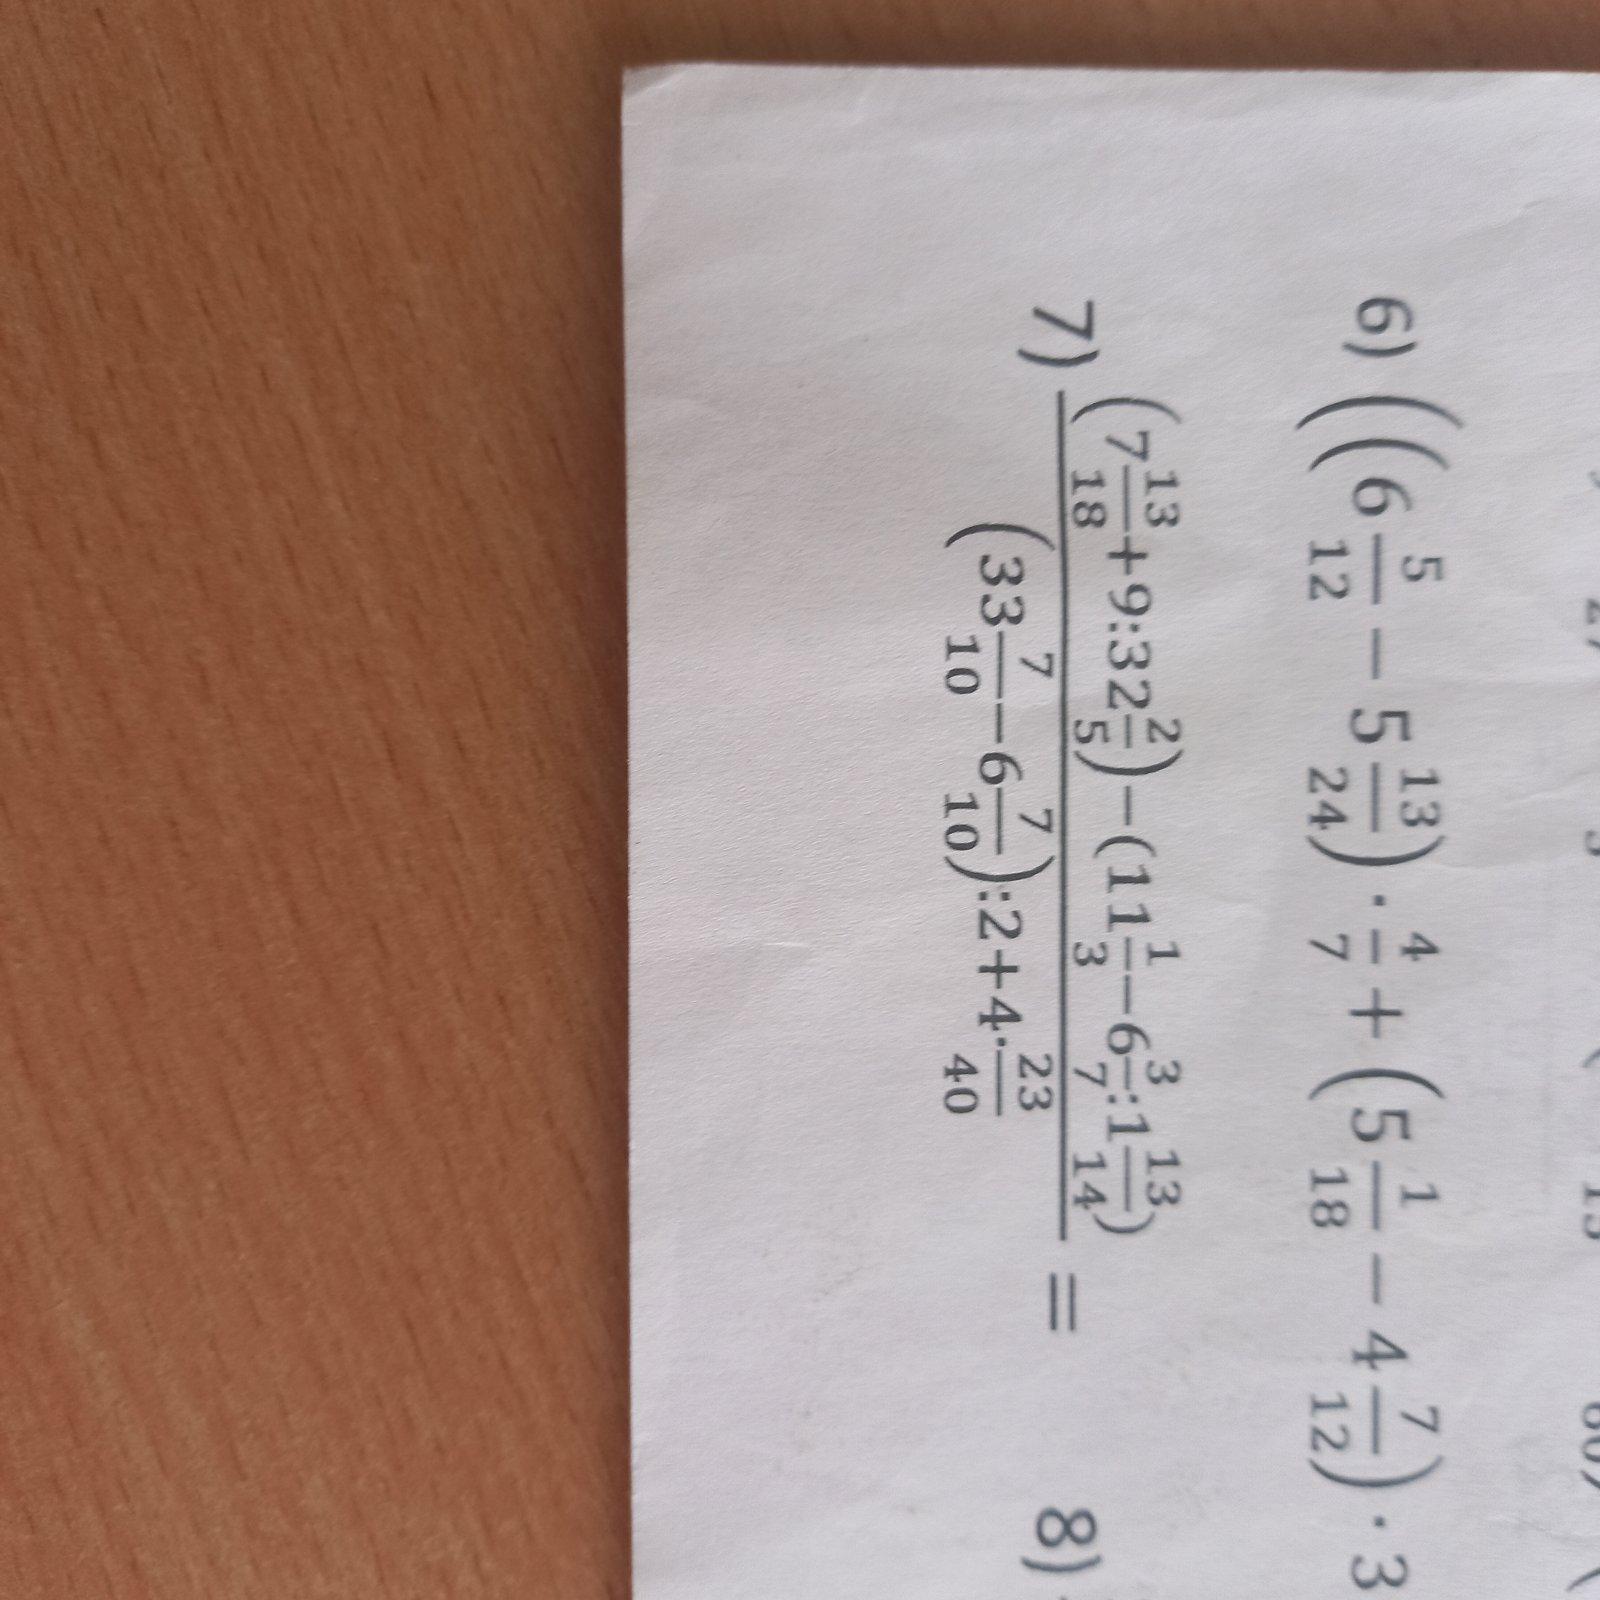 6) ((6 5/12 − 5 13/24) · 4/7 + (5 1/18 − 4 7/12) · 3
7) ((7 13/18 + 9:32 2/5) − (11 1/3 − 6 3/7 : 1 13/14)) / ((33 7/10 − 6 7/10):2 + 4· 23/40) = 8)